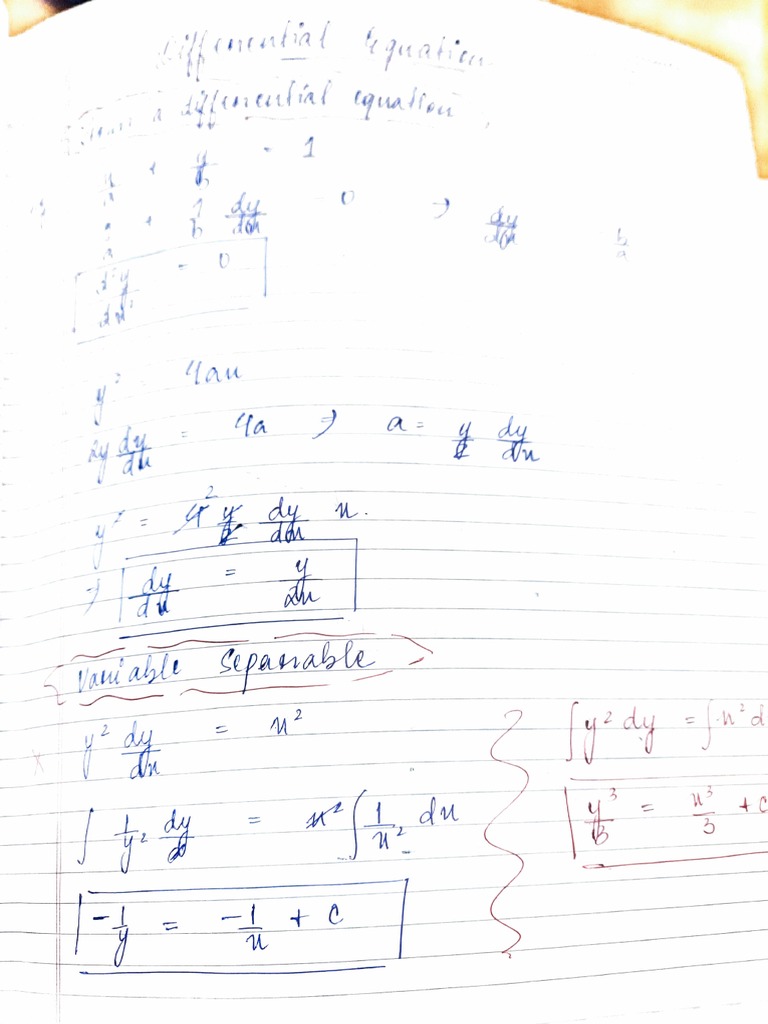 Differential Equation
a differential equation,
x/a + y/b = 1
1/a + 1/b dy/dx = 0 ⇒ dy/dx b/a
d²y/dx² = 0
y² = 4ax
2y dy/dx = 4a ⇒ a = y/2 dy/dx
y² = 4² y/2 dy/dx x.
⇒ dy/dx = y/2x
Variable Separable
x y² dy/dx = x²
∫ 1/y² dy = x² ∫ 1/x² dx
-1/y = -1/x + c
∫ y² dy = ∫ x² d
y³/3 = x³/3 + c